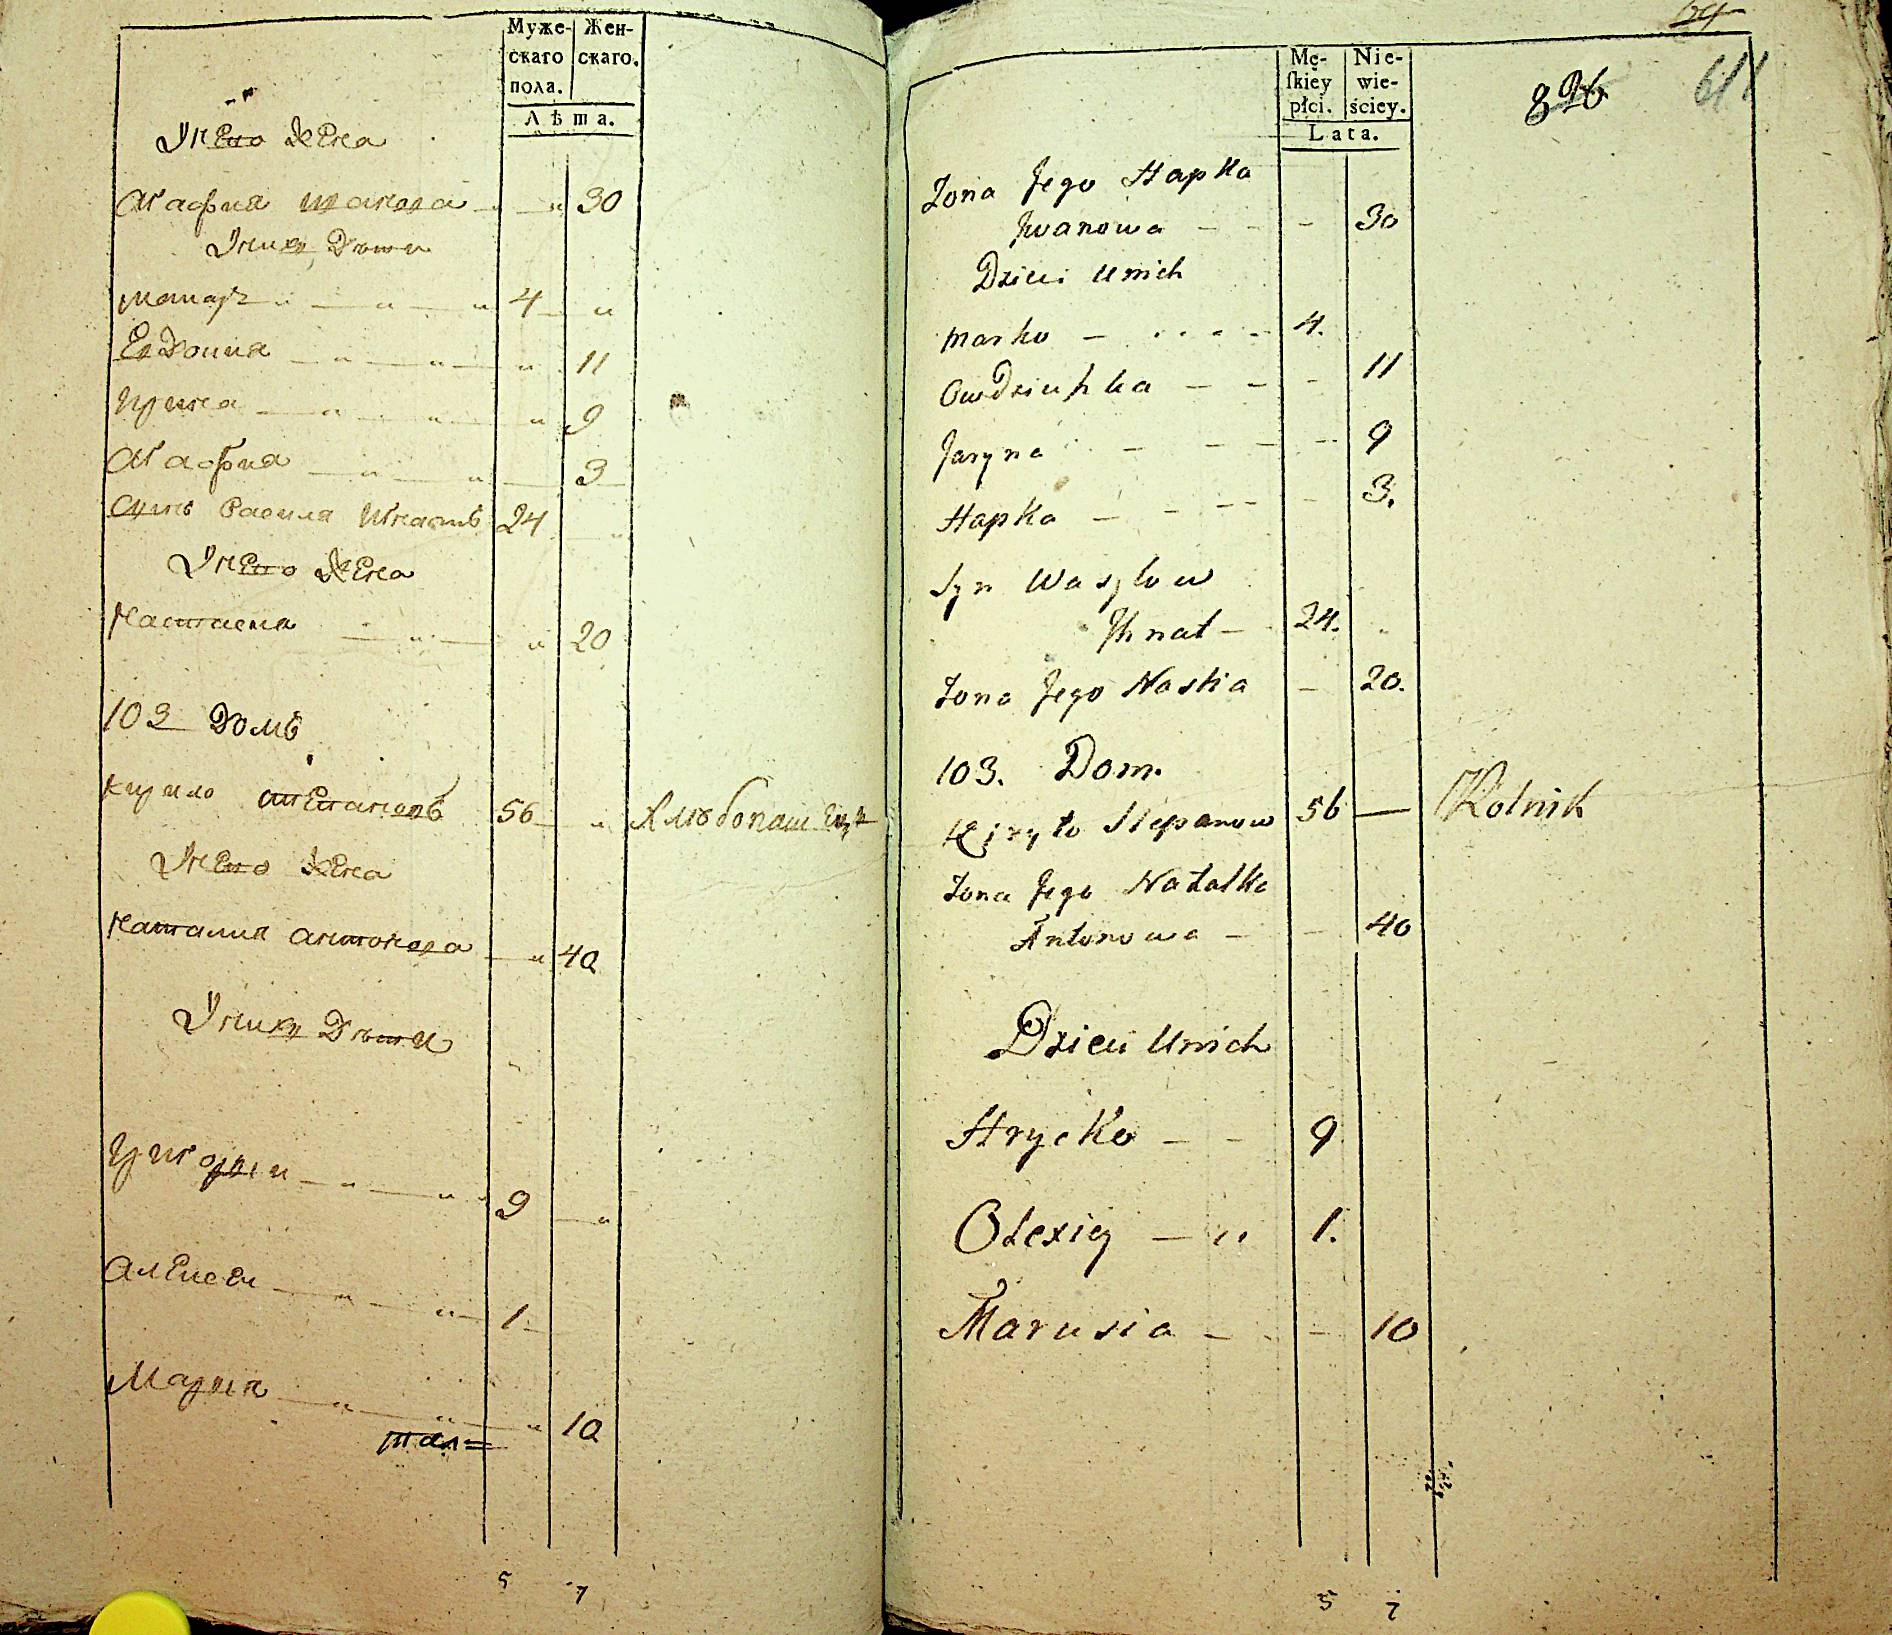 Муже- Жен-
скаго скаго.
пола.
Лѣта.
У него жена
Агафия иванова 30
У нихъ Дѣти
4
Евдокия 11
Ирина 9
Агафия 3
Сынъ Василя Игнатъ 24
У него жена
Настасия 20
103 Домъ
Кирило степановъ 56 хлѣбопашецъ
У него жена
Наталия антонова 40
У нихъ Дѣти
Григории 9
Алексеи 1
Мария 10
5 7
Mę- Nie-
skiey wie-
płci. ściey.
Lata.
896 611
Zona Jego Hapka
Jwanowa 30
Dzieci Unich
Marko 4.
Owdziuhka 11
Jaryna 9
Hapka 3.
Syn Wasylow
Jhnat 24.
Zona Jego Nastia 20.
103. Dom.
Kiryło Stepanow 56 Rolnik
Zona Jego Natalka
Antonowa 40
Dzieci Unich
Hrycko 9
Olexiey 1.
Marusia 10
5 7